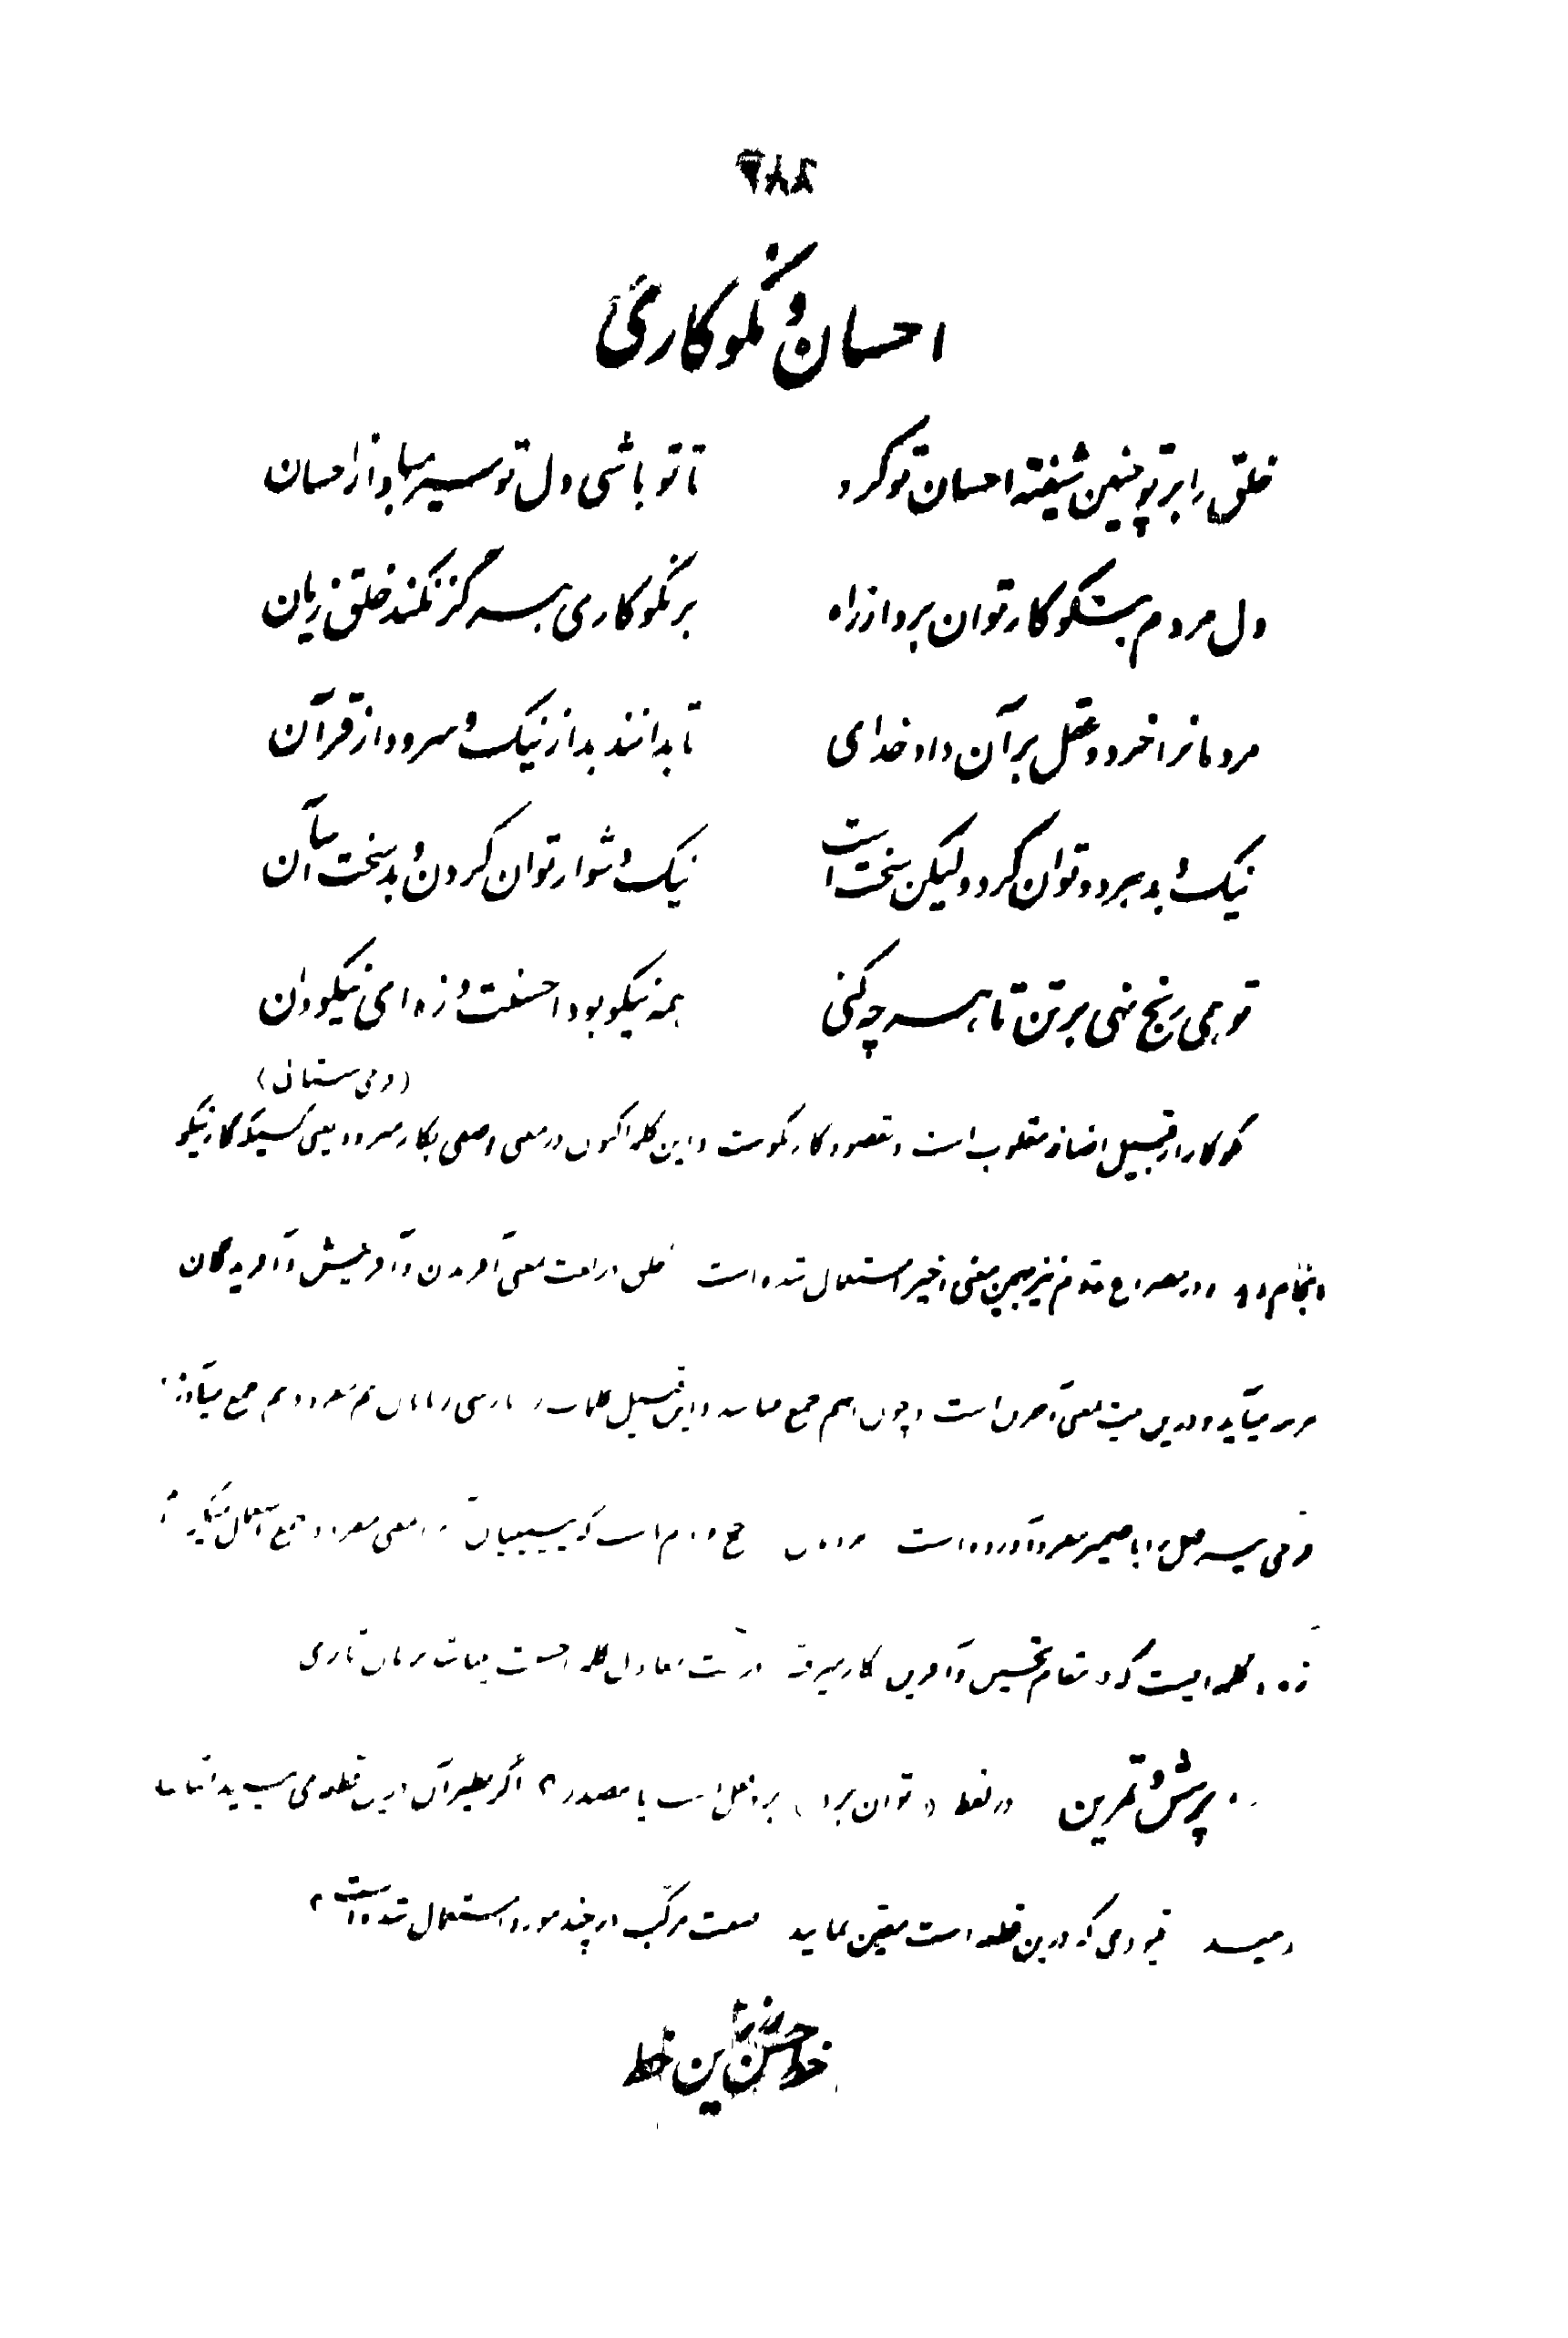 ۲۸۲
احسان و نکوکاری
خلق را بر تو چنین شیفته احسان تو کرد تا تو باشی دل تو سیر مباد از احسان
دل مردم بنکوکار توان برد از راه بر نکوکاری هرگز نکند خلق زیان
مردمانرا خرد و عقل بر آن داد خدای تا بدانند بد از نیک و سرود از قرآن
نیک و بد هر دو توان کرد ولیکن سخت است نیک دشوار توان کردن و بد سخت آسان
تو همی رنج نهی بر تن تا هر چه کنی همه نیکو بود احسنت و زه ای نیکودان
(فرخی سیستانی)
نکوکار از قبیل اضافه مقلوب است و مقصود کار نکوست و این کلمه اکنون در معنی وصفی بکار میرود یعنی کسیکه کار نیکو
انجام دهد و در مصراع دوم نیز بهمین معنی اخیر استعمال شده است خلق در لغت بمعنی آفریدن و آفرینش و آفریدگان
میآید و درین بیت بمعنی است و چون اسم جمع و این قبیل کلمات در پارسی هم مفرد و هم جمع میآورند
فرخی نیز فعل را با ضمیر مفرد آورده است جمع مردم است که پیشینیان در معنی مفرد و جمع استعمال
زه، کلمه ایست که در مقام تحسین و آفرین بکار میرود و معادل کلمه احسنت بزبان تازی
پرسش و تمرین در لفظ (توان برد) برد فعل است یا مصدر؟ اگر نظیر آن درین قطعه می بینید
قیودی که درین قطعه است معین نمایید صفت مرکب در چند مورد استعمال شده است؟
خط حسن زرین خط